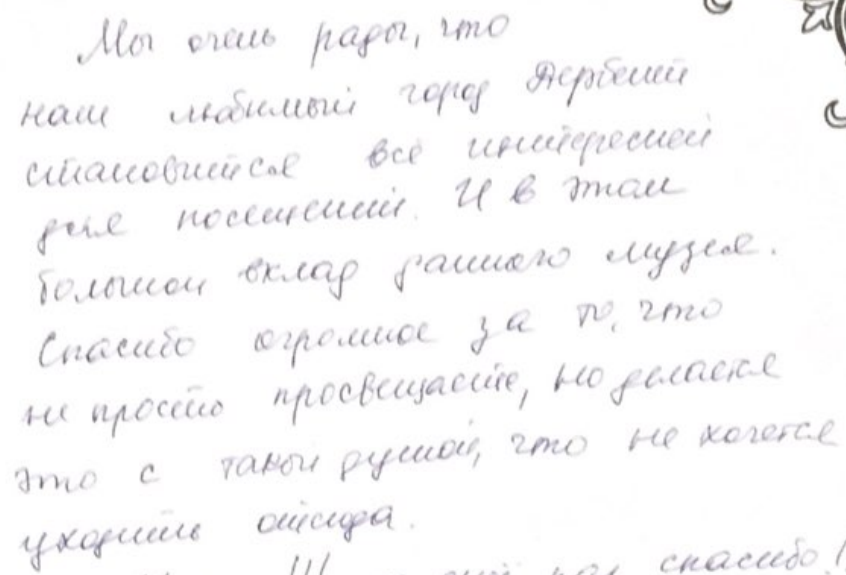 Мы очень рады, что
наш любимый город Дербент
становится всё интересней
для посещений. И в этом
большой вклад данного музея.
Спасибо огромное за то, что
не просто просвещаете, но делаете
это с такой душой, что не хочется
уходить отсюда.
!!! раз спасибо!